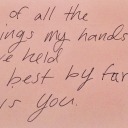 of all the
ings my hands
ve held
best by far
is you.